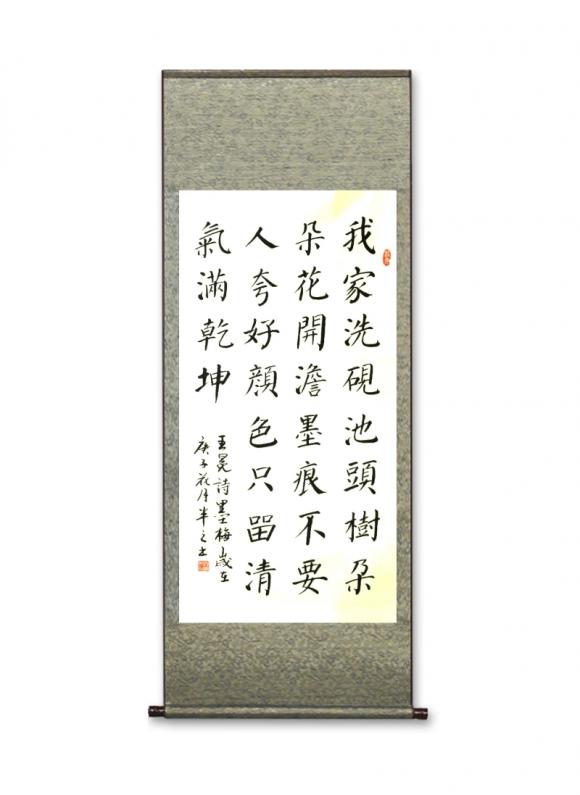 我家洗硯池頭樹朶
朵花開澹墨痕不要
人夸好顔色只留清
氣滿乾坤
王冕詩墨梅歲在
庚子花月半之書